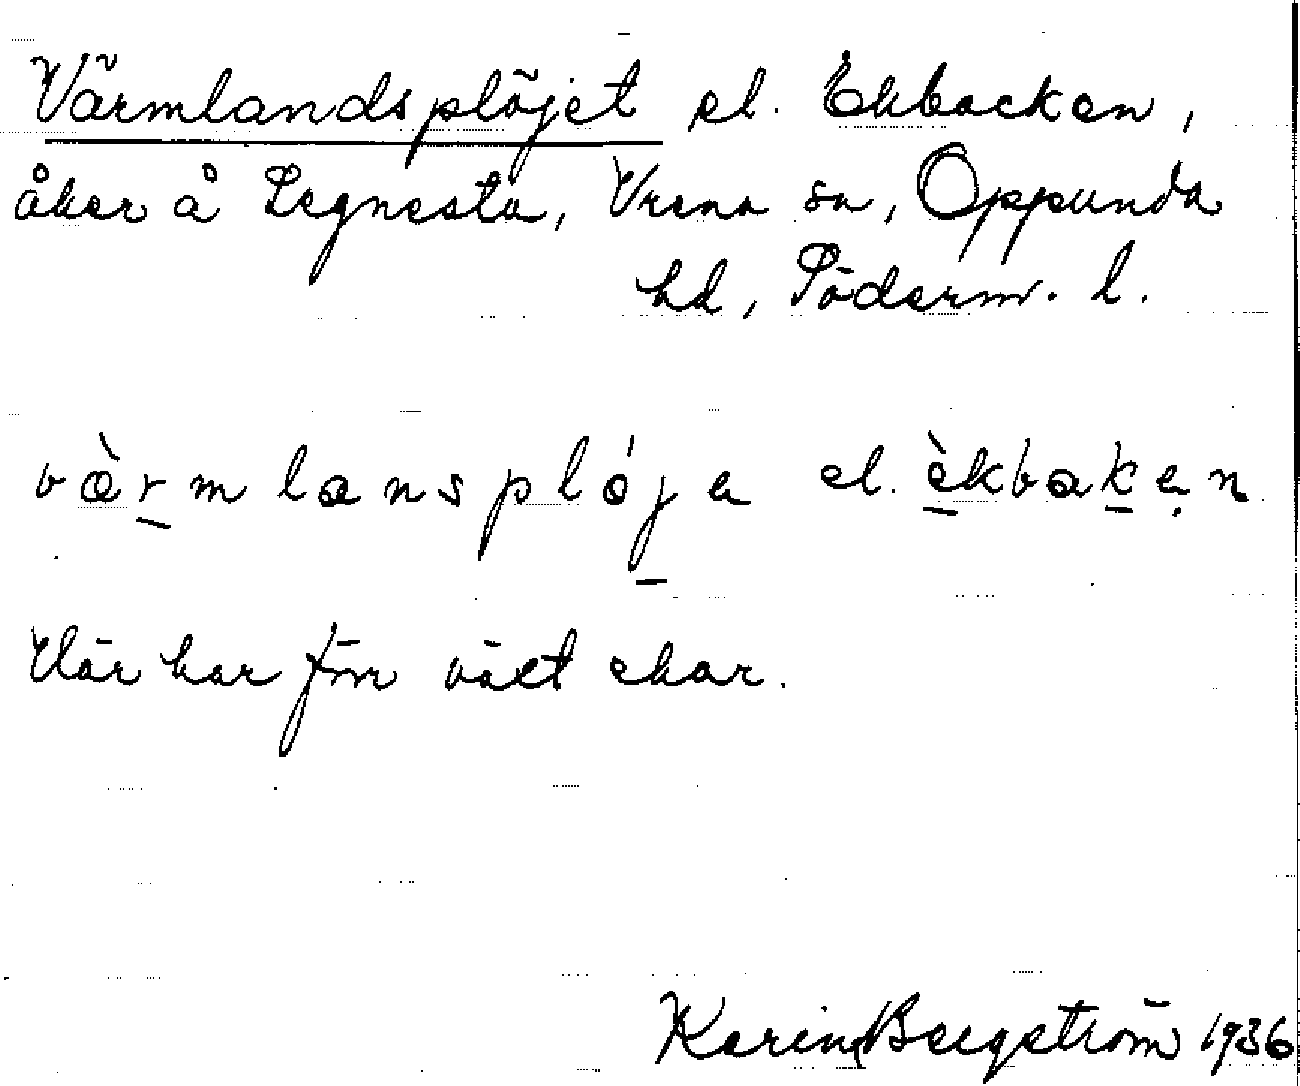 Värmlandsplöjet el. Ekbacken,
åker å Segnesta, Vrena sn, Oppunda
hd, Söderm. l.
vàrmlansplöja el. èkbakạn
Här har förr växt ekar.
Karin Bergström 1936